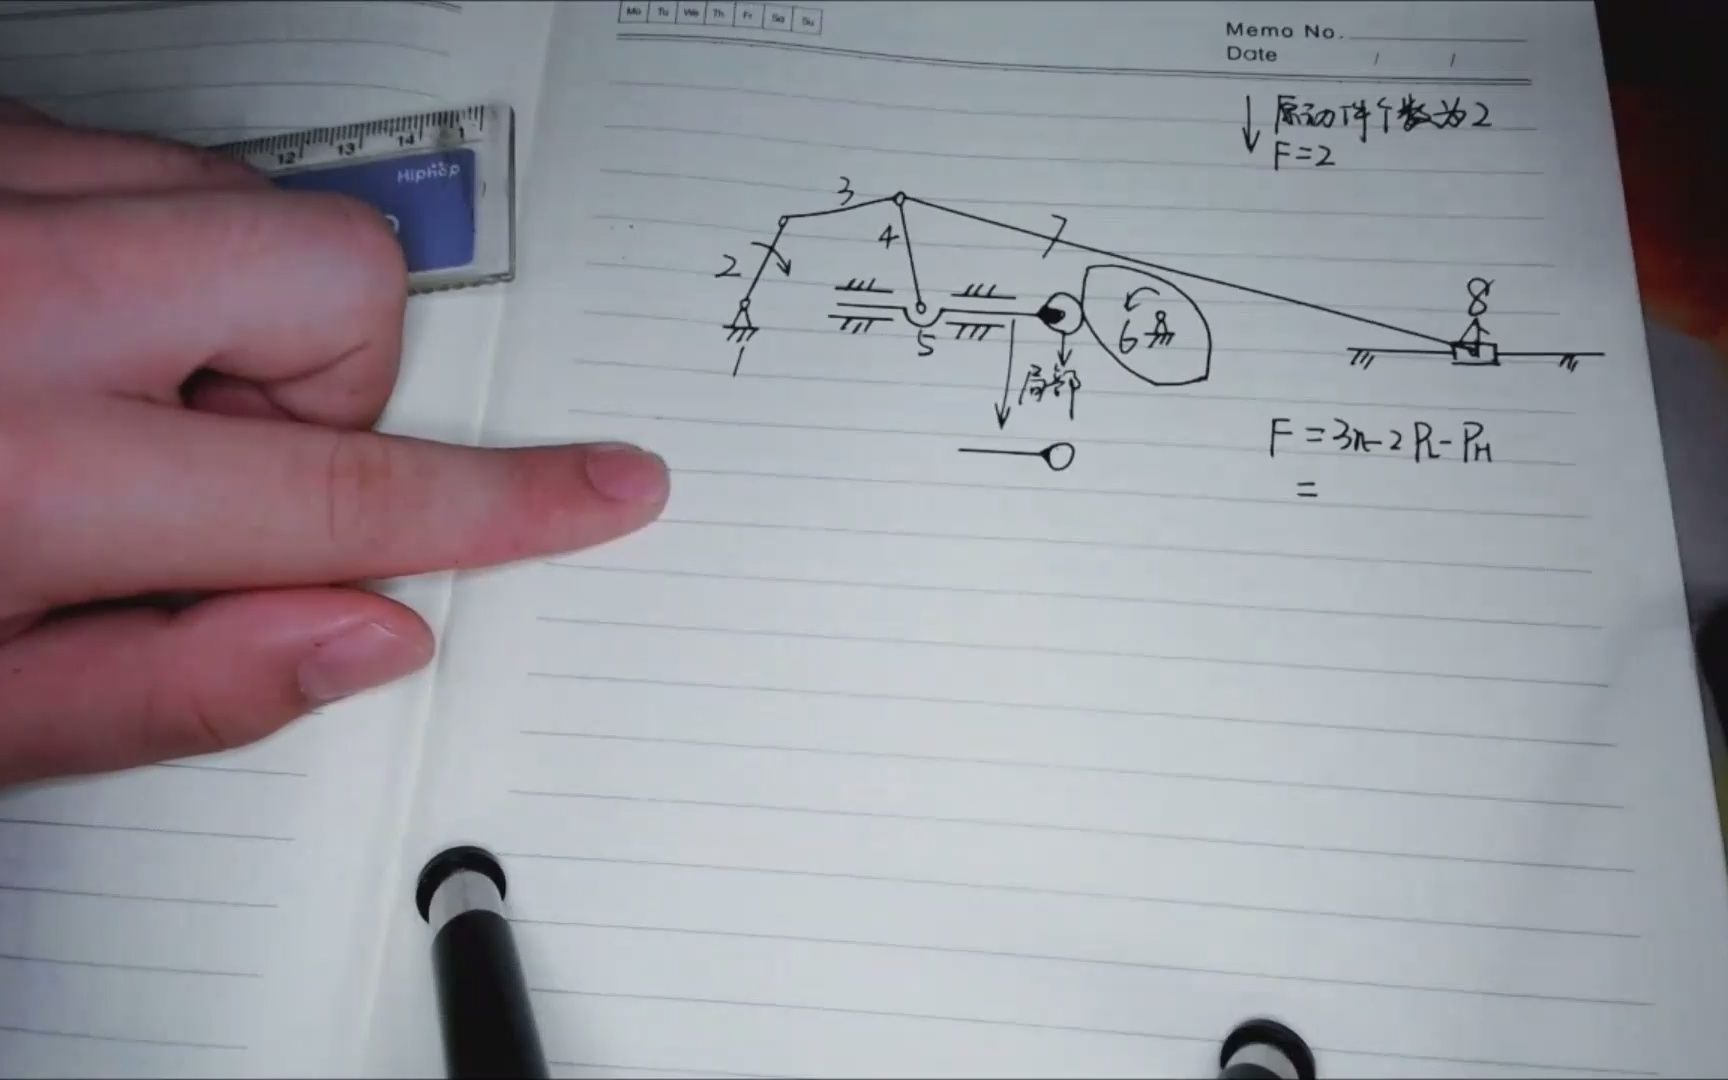 Mo Tu We Th Fr Sa Su
Memo No.
Date / /
原动件个数为2
F=2
12 13 14
Hiphop
3
7
4
2
8
6
5
1
局部
F=3n-2PL-PH
=